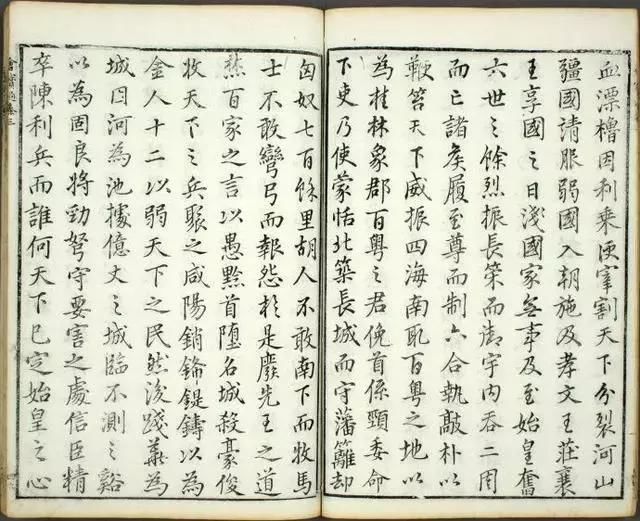 血漂櫓因利乗便宰割天下分裂河山
疆國請服弱國入朝施及孝文王莊襄
王享國之日淺國家無事及至始皇奮
六世之餘烈振長策而御宇内吞二周
而亡諸侯履至尊而制六合執敲朴以
鞭笞天下威振四海南取百粤之地以
為桂林象郡百粤之君俛首係頸委命
下吏乃使蒙恬北築長城而守藩籬却
匈奴七百餘里胡人不敢南下而牧馬
士不敢彎弓而報怨於是廢先王之道
焚百家之言以愚黔首墮名城殺豪俊
收天下之兵聚之咸陽銷鋒鍉鑄以為
金人十二以弱天下之民然後踐華為
城因河為池據億丈之城臨不測之谿
以為固良將勁弩守要害之處信臣精
卒陳利兵而誰何天下已定始皇之心